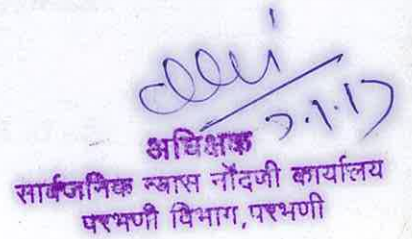 अधिक्षक
सार्वजनिक न्यास नोंदणी कार्यालय
परभणी विभाग, परभणी